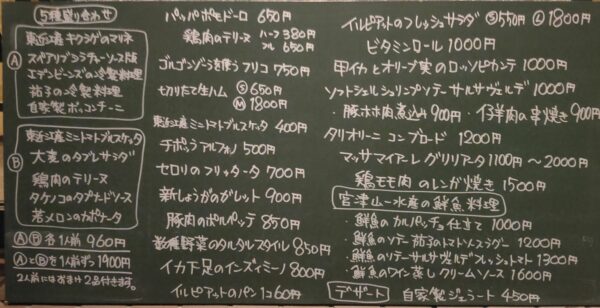 5種盛り合わせ
Ⓐ
東近江産キクラゲのマリネ
スペアリブ
エダマビーンズの冷製料理
茄子の冷製料理
自家製ボッコンチーニ
Ⓑ
東近江産ミニトマトブルスケッタ
大麦のタブレサラダ
鶏肉のテリーヌ
タケノコのタプナードソース
若メロンのカポナータ
ⒶⒷ各1人前 960円
ⒶとⒷを1人前ずつ 1900円
2人前にはおまけ2品付きます。
パッパポモドーロ 650円
鶏肉のテリーヌ ハーフ 380円
フル 650円
ゴルゴンゾーラを使うフリコ 750円
切りたて生ハム Ⓢ650円
Ⓜ1800円
東近江産ミニトマトブルスケッタ 400円
チポッラアルフォルノ 500円
セロリのフリッタータ 700円
新しょうがのガレット 900円
豚肉のポルペッテ 850円
数種野菜のタルタルスタイル 850円
イカ下足のインズィミーノ 800円
イルピアットのパン 1コ60円
イルピアットのフレッシュサラダ Ⓢ550円 Ⓛ1800円
ビタミンロール 1000円
甲イカとオリーブ実のロッソピカンテ 1000円
ソフトシェルシュリンプソテーサルサヴェルデ 1000円
・豚ホホ肉煮込み 900円 ・仔羊肉の串焼き 900円
タリオリーニ コンブロード 1200円
マッサマイアーレグリリアータ 1100円～2000円
鶏モモ肉のレンガ焼き 1500円
宮津山一水産の鮮魚料理
・鮮魚のカルパッチョ仕立て 1000円
・鮮魚のソテー茄子のトマトソースラグー 1200円
・鮮魚のソテーサルサヴェルデフレッシュトマト 1300円
・鮮魚のワイン蒸しクリームソース 1600円
デザート 自家製ジェラート 450円